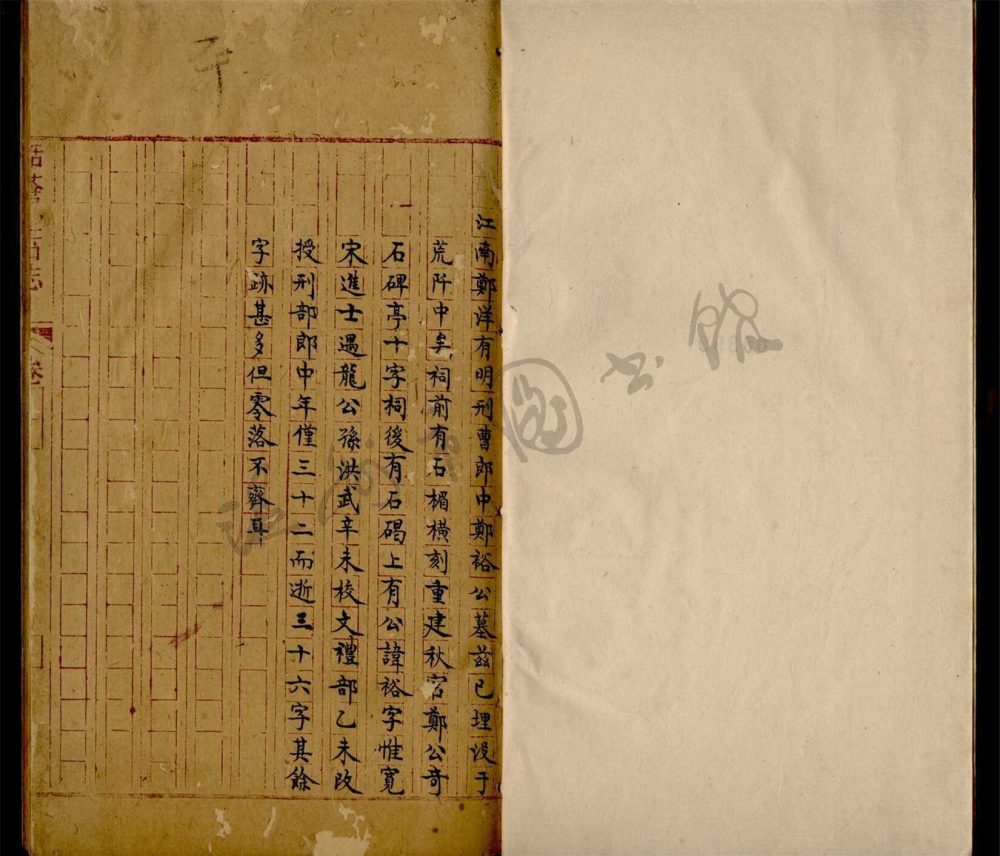 江南鄭洋有明刑曹郎中鄭裕公墓茲已埋沒于
荒阡中矣祠前有石楣橫刻重建秋官鄭公奇
石碑亭十字祠後有石碣上有公諱裕字惟寬
宋進士遇龍公孫洪武辛未校文禮部乙未改
授刑部郎中年僅三十二而逝三十六字其餘
字跡甚多但零落不齊耳
圖書館